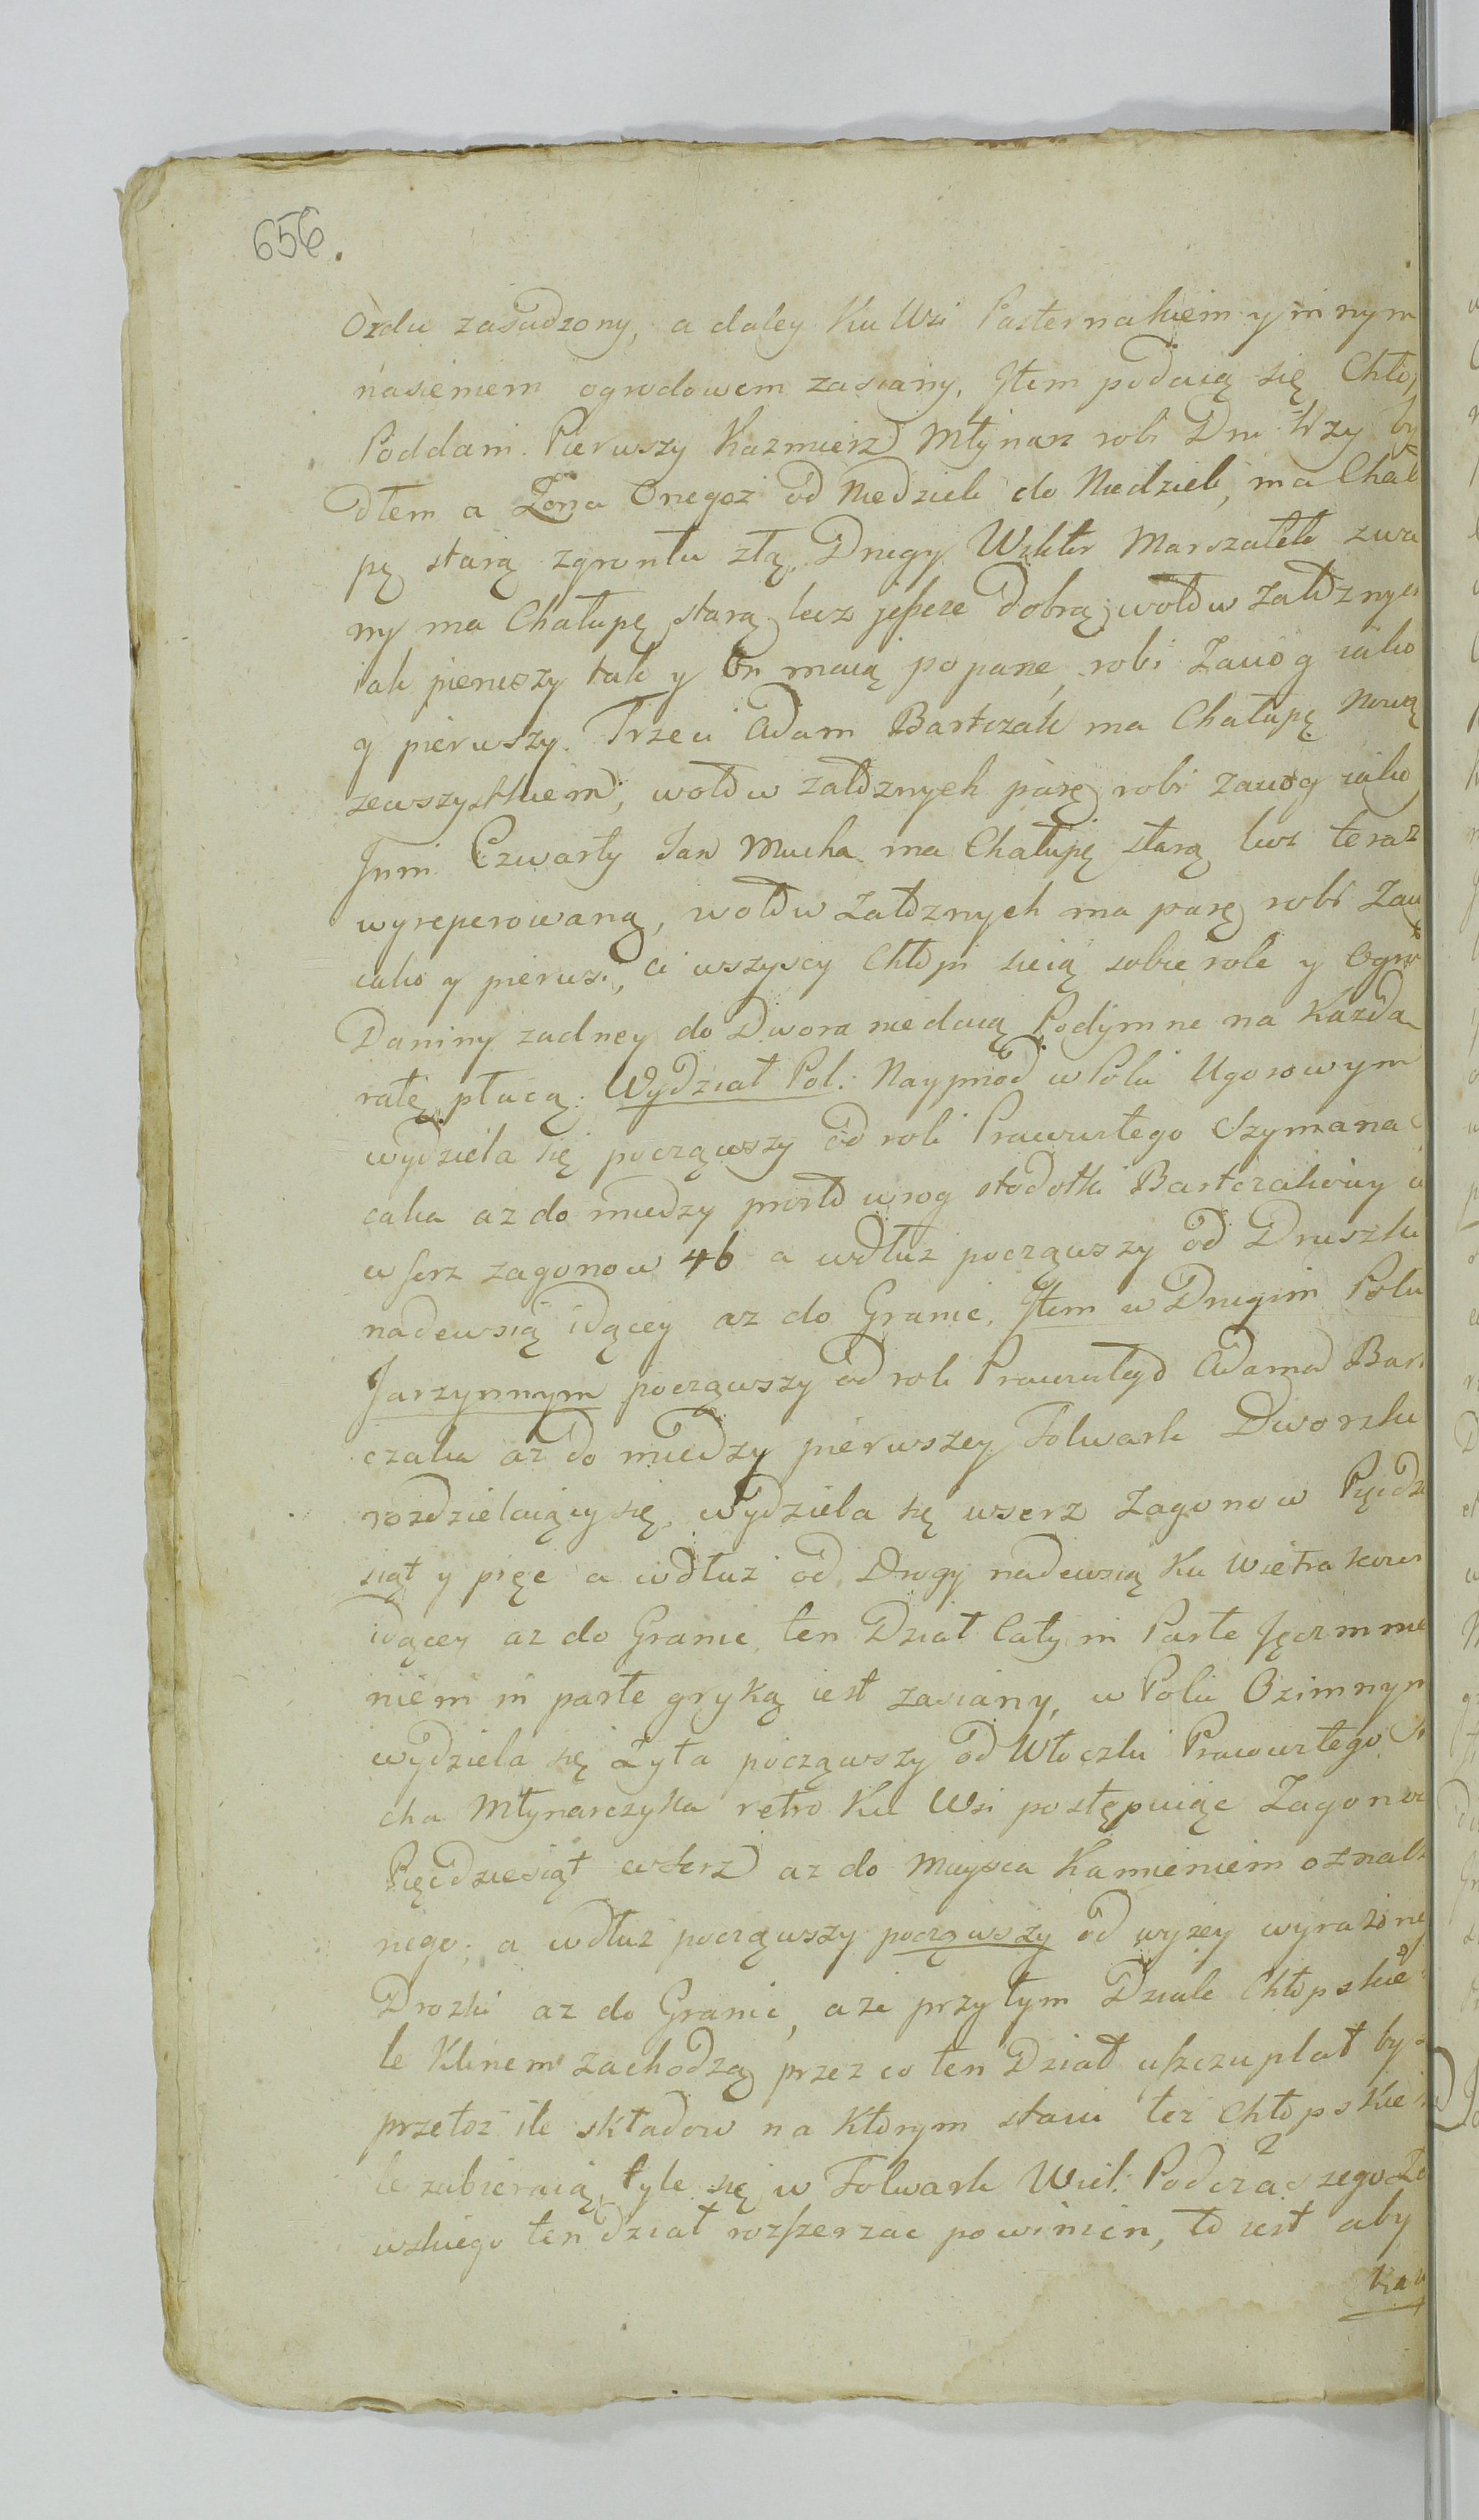 656.
Ozdu zasadzony, a daley Ku Wsi Pasternakiem y innym
nasieniem ogrodowem zasiany, Jtem podaią się Chło
Poddani. Pierwszy Kazmierz Młynarz robi Dni trzy by
dłem a Zona Onegoz od Niedzieli do Niedzieli, ma Chału
pę starą zgruntu złą. Drugy Wiktor Marszałek zwa
ny ma Chałupę starą lecz jeszcze dobrą, wołow załoznych
iak pierwszy tak y On maią po parze, robi Zaciog iako
y pierwszy. Trzeci Adam Bartczak ma Chałupę Nową
zewszystkiem, wołow załoznych parę robi zaciog iako
Jnni Czwarty Jan Mucha ma Chałupę starą lecz teraz
wyreperowaną, wołow załoznych ma parę robi Zac
iako y pierwsi, ci wszyscy Chłopi sieią sobie role y Ogro
Daniny zadney do Dwora niedaią Podymne na Kazda
ratę płacą. Wydział Pol: Nayprzod w Polu Ugorowym
wydziela się począwszy od roli Pracowitego Szyman
caka az do miedzy prosto wrog stodołki Bartczakowey
wszerz zagonow 46 a wdłuz począwszy od Druszki
nadewsią idącey az do Granic, Jtem w Drugim Polu
Jarzynnym począwszy od roli Pracowitego Adama Bar
czaka az do miedzy pierwszey Folwark Dworzki
rozdzielaiącey się, wydziela się wszerz Zagonow Pięcdzi
siąt y pięc a wdłuz od Drogy nadewsią Ku Wiatrakowi
idącey az do Granic, ten Dział Cały in Parte Jęczmnie
niem in parte gryką iest zasiany, w Polu Ozimnym
wydziela się Zyta począwszy od Włoczki Pracowitego
cha Młynarczyka retro Ku Wsi postępuiąc Zagonow
Pięcdziesiąt wszerz az do Mieysca Kamieniem oznaco
nego, a wdłuz począwszy począwszy od wyzey wyrazoney
Drozki az do Granic, a ze przytym Dziale Chłopskie
le Klinem zachodzą przez co ten Dział uszczuplał by
przetoz ile składow na Ktorym staiu tez Chłopskie
le zabieraią, tyle się w Folwark Wiel: Podczaszego
wskiego ten dział rozszerzac powinien, to iest aby